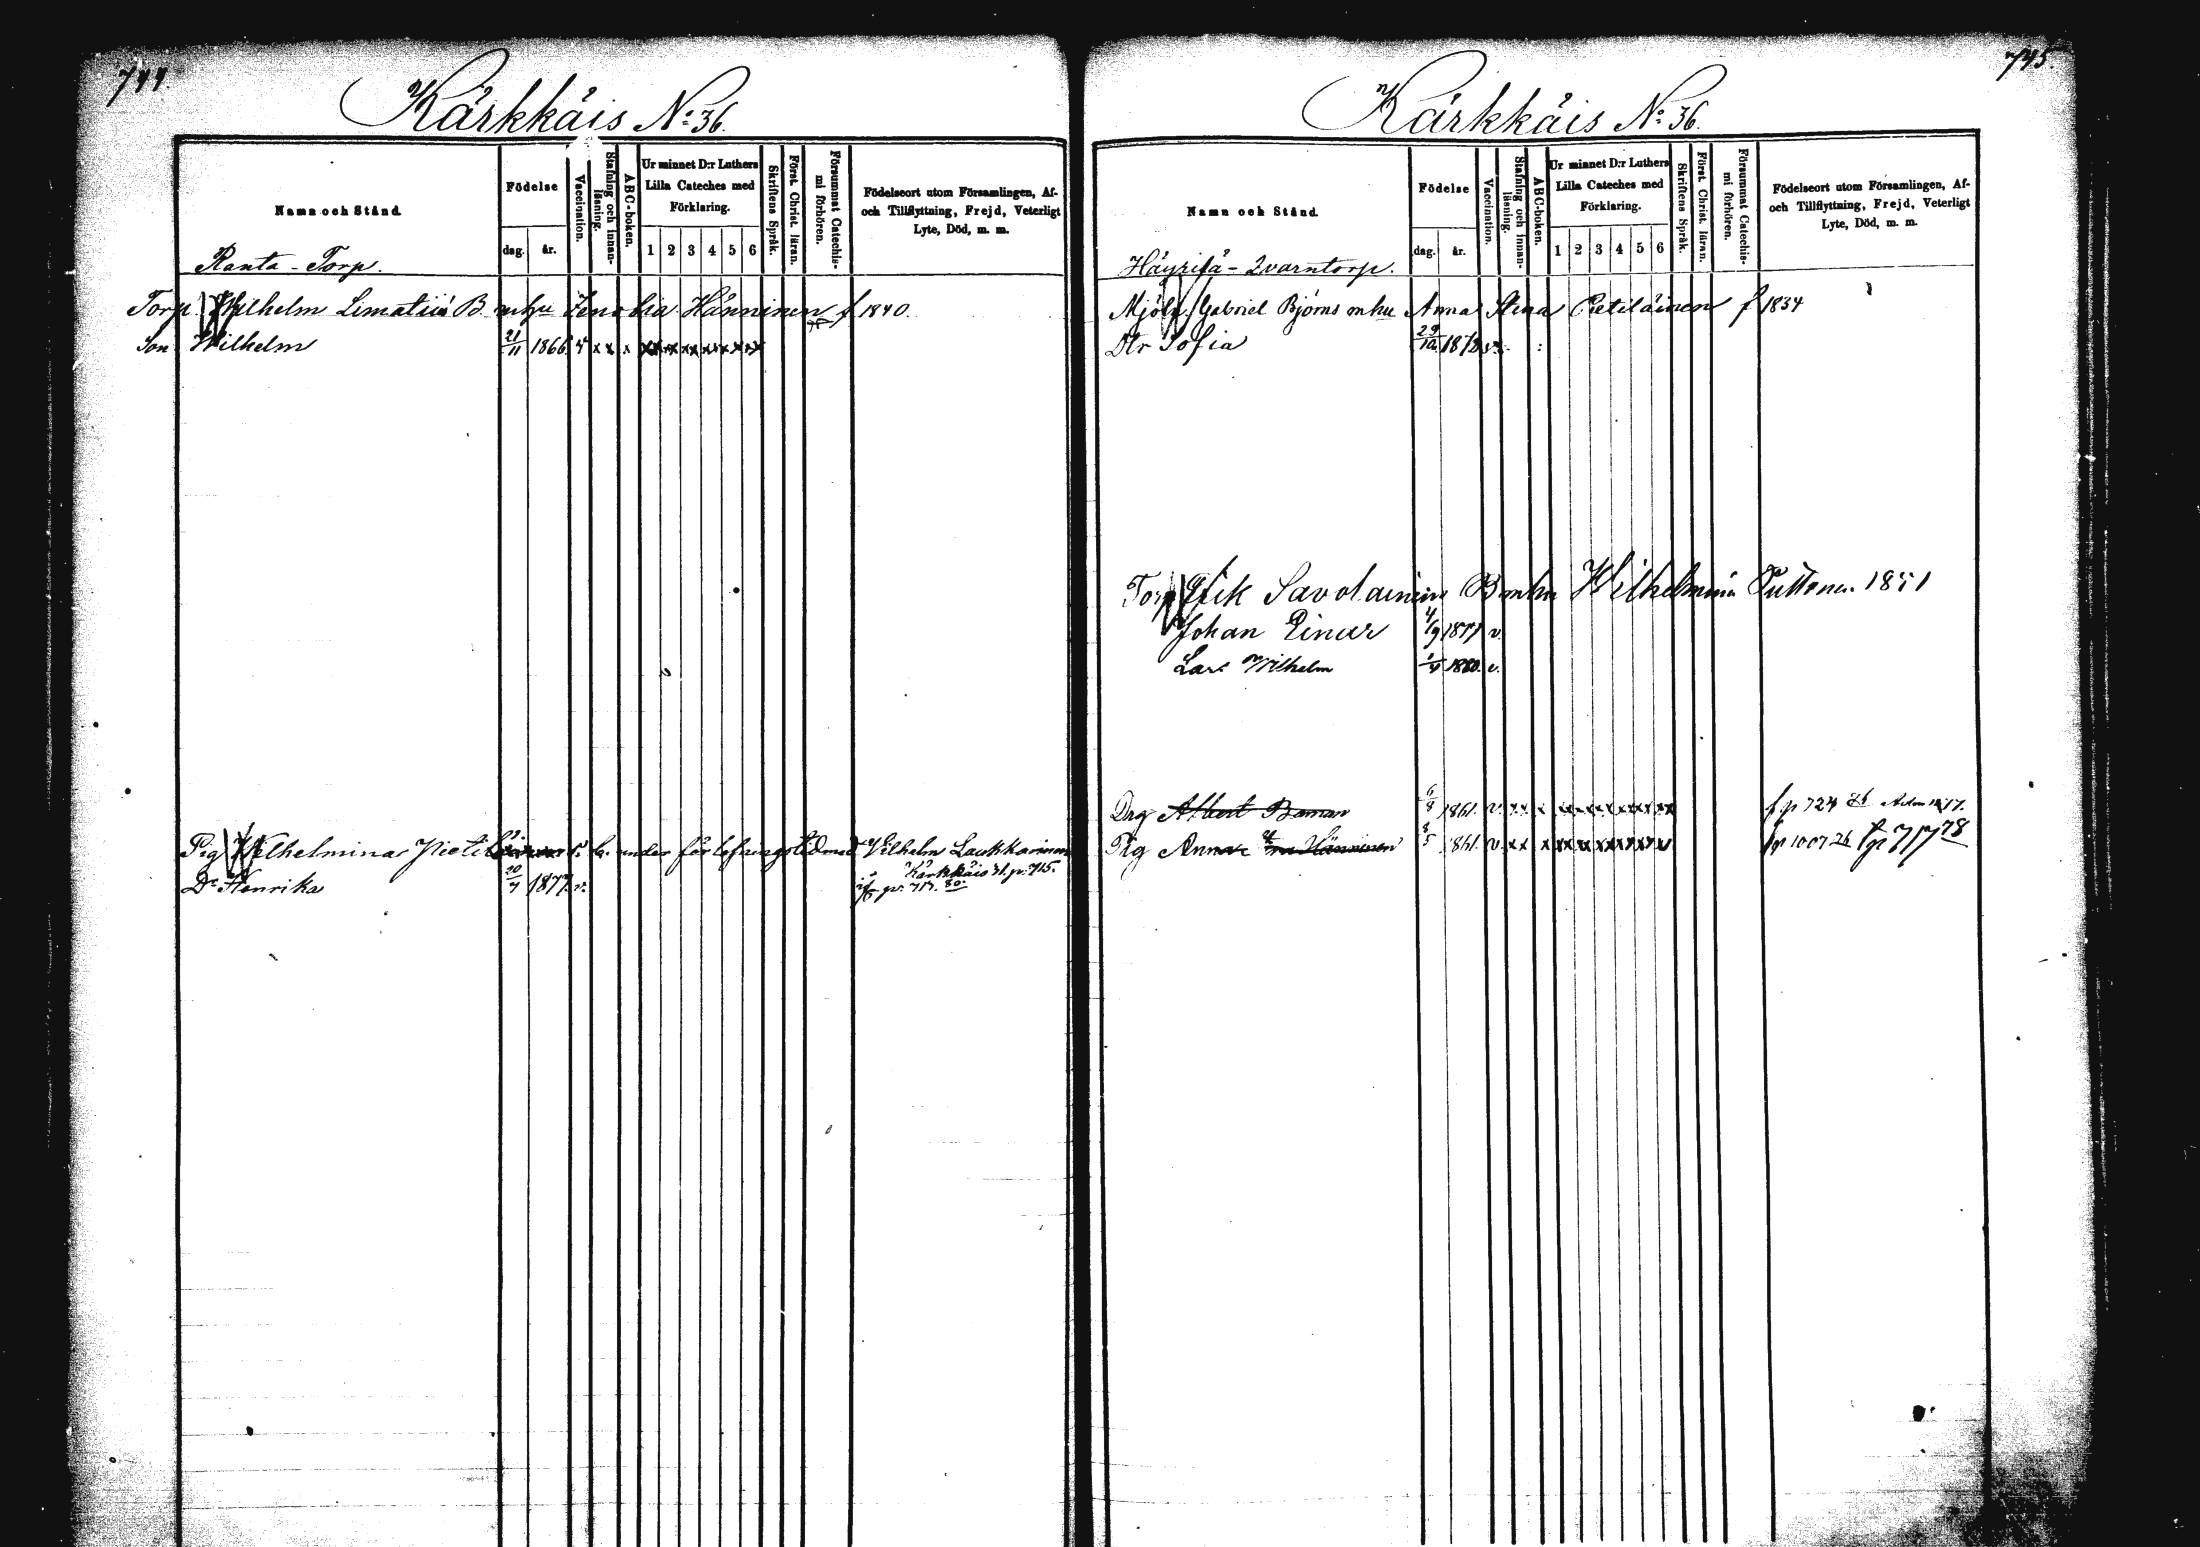 744.
Kärkkäis No 36.
Namn och Stånd
Födelse
dag. år.
Vaccination.
Stafning och innanläsning.
ABC-boken.
Ur minnet D:r Luthers Lilla Cateches med Förklaring.
1 2 3 4 5 6
Skriftens Språk.
Först. Christ. läran.
Försummat Catechismi förhören.
Födelseort utom Församlingen, Af- och Tillflyttning, Frejd, Veterligt Lyte, Död, m. m.
Ranta-Torp.
Torp. Wilhelm Limatius B. enkja Zenobia Hänninen f 1840.
Son Wilhelm 21/11 1866 v x x x
Pig Wilhelmina under förlofningstid med Vilhelm Laukkarinen
Kärkkäis 31. p. 715.
Dr Henrika 20/7 1877. v. p. 717. 80.
745.
Kärkkäis No 36.
Namn och Stånd.
Födelse
dag. år.
Vaccination.
Stafning och innanläsning.
ABC-boken.
Ur minnet D:r Luthers Lilla Cateches med Förklaring.
1 2 3 4 5 6
Skriftens Språk.
Först. Christ. läran.
Försummat Catechismi förhören.
Födelseort utom Församlingen, Af- och Tillflyttning, Frejd, Veterligt Lyte, Död, m. m.
Häyrilä-Qvarntorp.
Mjöln. Gabriel Björns enku Anna Stina Pietiläinen f 1834
Dtr Sofia 29/10 1872
Torp Erik Savolainens Benku Wilhelmina Puttonen 1851
Johan Einar 4/9 1877 v.
Lars Wilhelm 1/4 1880. v.
Drg Albert 6/8 1861. v. x x x fr p 724
Pig Anna Hänninen 8/5 1861. v x x x fr p 1007 p 717 78